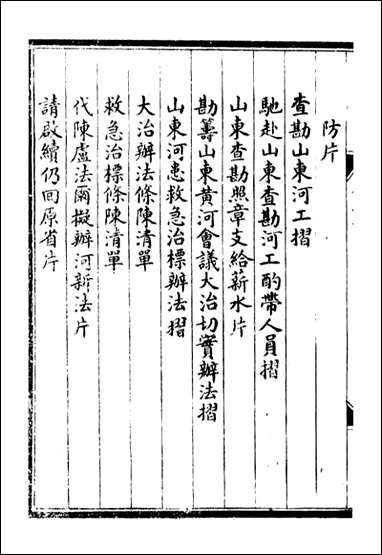 防片
查勘山東河工摺
馳赴山東查勘河工酌帶人員摺
山東查勘照章支給薪水片
勘籌山東黄河會議大治切實辦法摺
山東河患救急治標辦法摺
大治辦法條陳清單
救急治標條陳清單
代陳盧法爾擬辦河新法片
請啟續仍回原省片